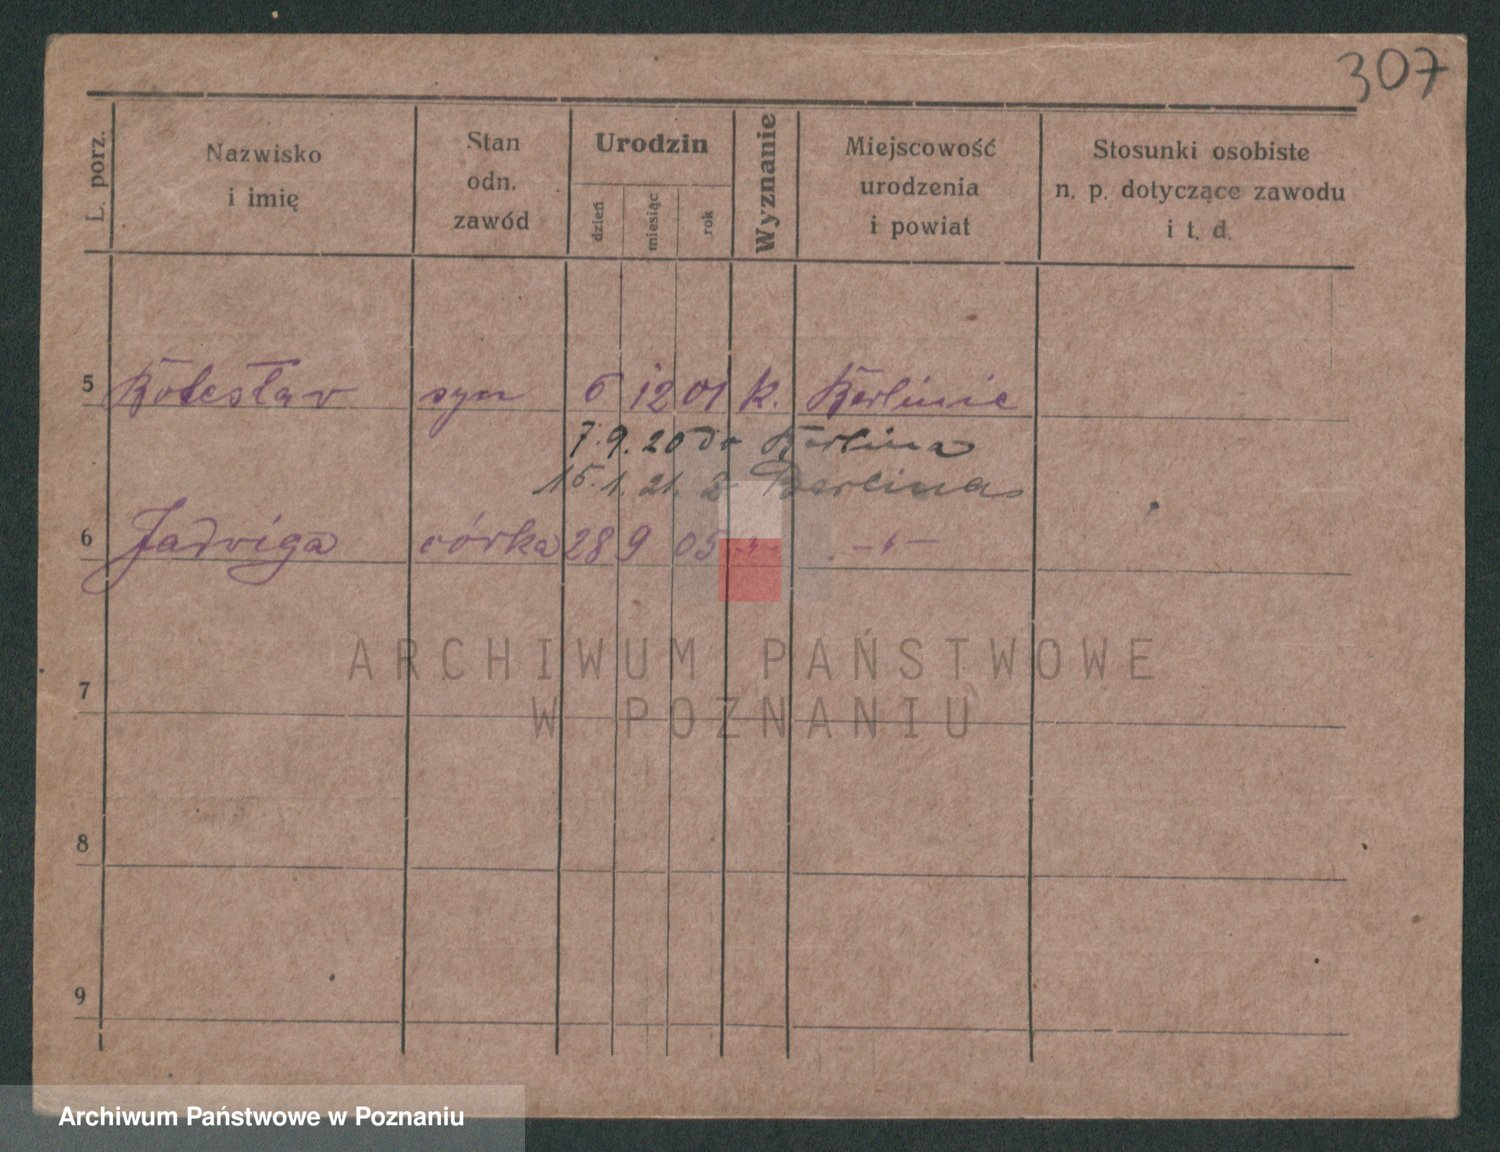 307
L. porz.
Nazwisko
i imię
Stan
odn.
zawód
Urodzin
dzień
miesiąc
rok
Wyznanie
Miejscowość
urodzenia
i powiat
Stosunki osobiste
n. p. dotyczące zawodu
i t. d.
5 Bolesław syn 6 12 01 k. Berlinie
7. 9. 20 do Berlina
15. 1. 21. z Berlina
6 Jadwiga córka 28 9 05 -"- -"-
ARCHIWUM PAŃSTWOWE
W POZNANIU
7
8
9
Archiwum Państwowe w Poznaniu